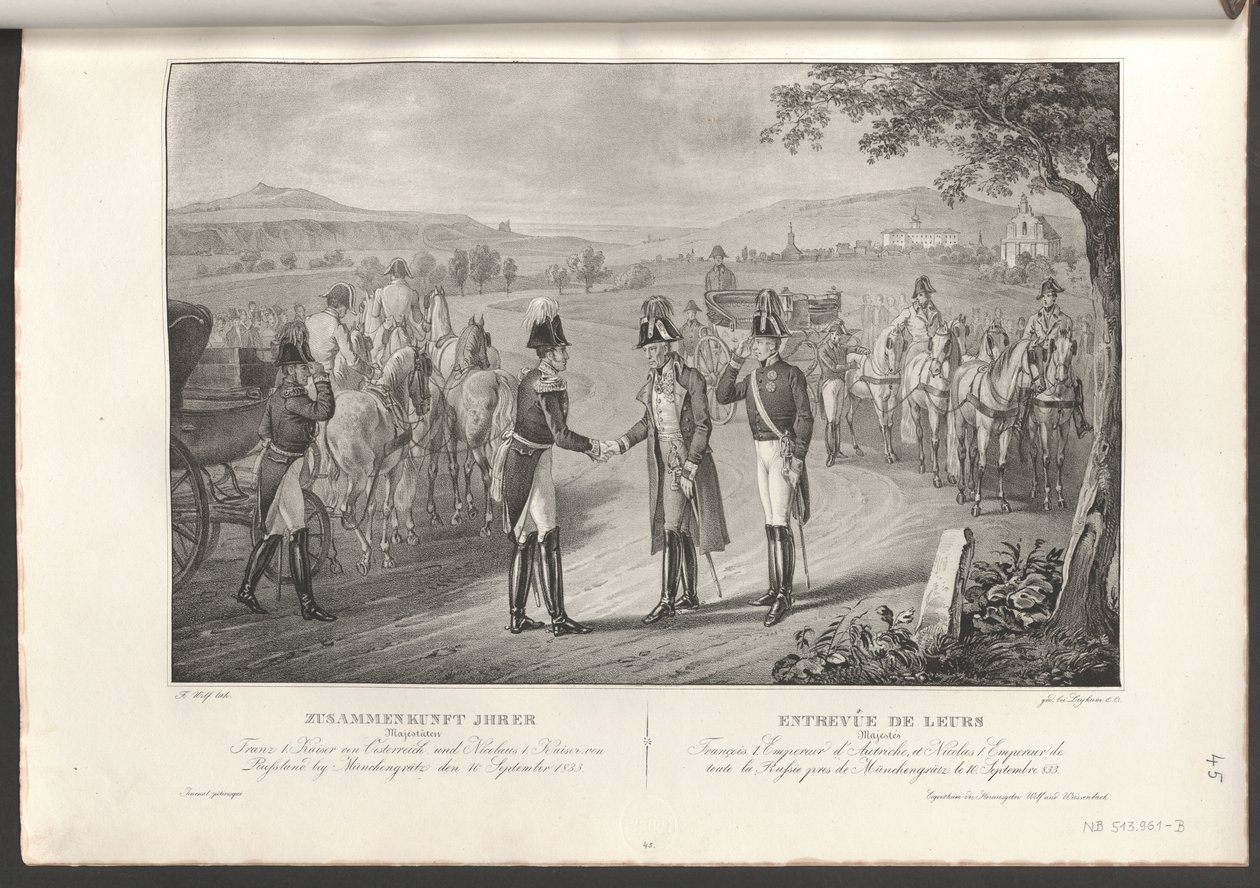 F. Wolf lith.
gedr. bei Leykum u. C.
ZUSAMMENKUNFT JHRER
Majestäten
Franz 1. Kaiser von Oesterreich und Nicolaus 1. Kaiser von
Rußland bey Münchengrätz den 10 September 1833.
ENTREVÛE DE LEURS
Majestés
François 1. Empereur d'Autriche, et Nicolas 1. Empereur de
toute la Russie pres de Münchengrätz le 10. Septembre 833.
Journal pitoresque
Eigenthum der Herausgeber Wolf und Weissenbach
45.
45
NB 513.961-B